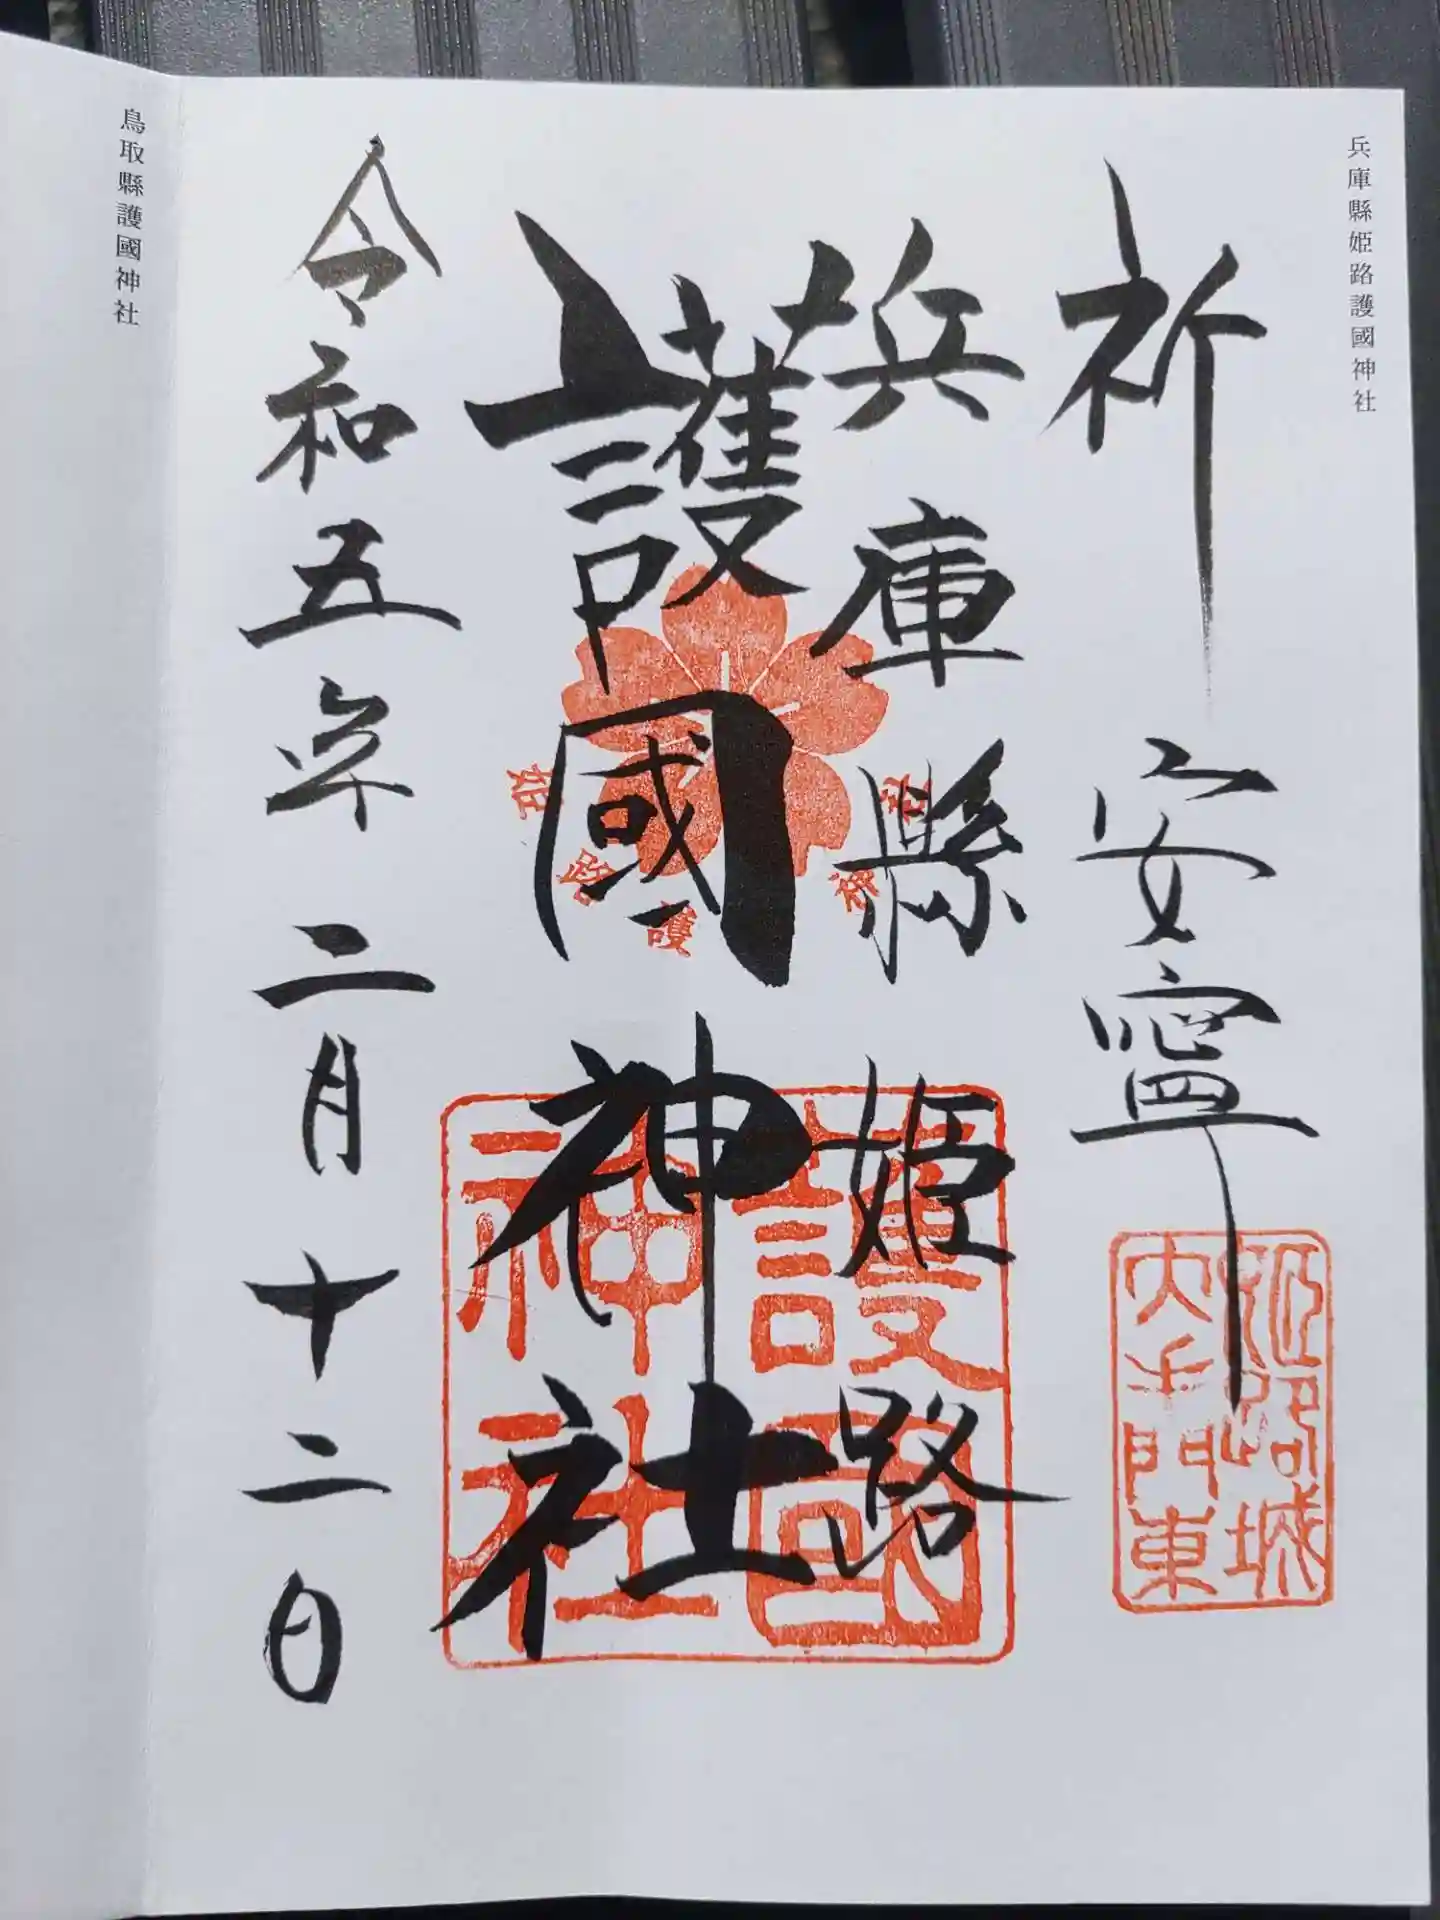 兵庫縣姫路護國神社
祈 安寧
姫路城
大手門東
兵庫縣姫路
護國神社
姫路護
神社
護國
神社
令和五年二月十二日
鳥取縣護國神社